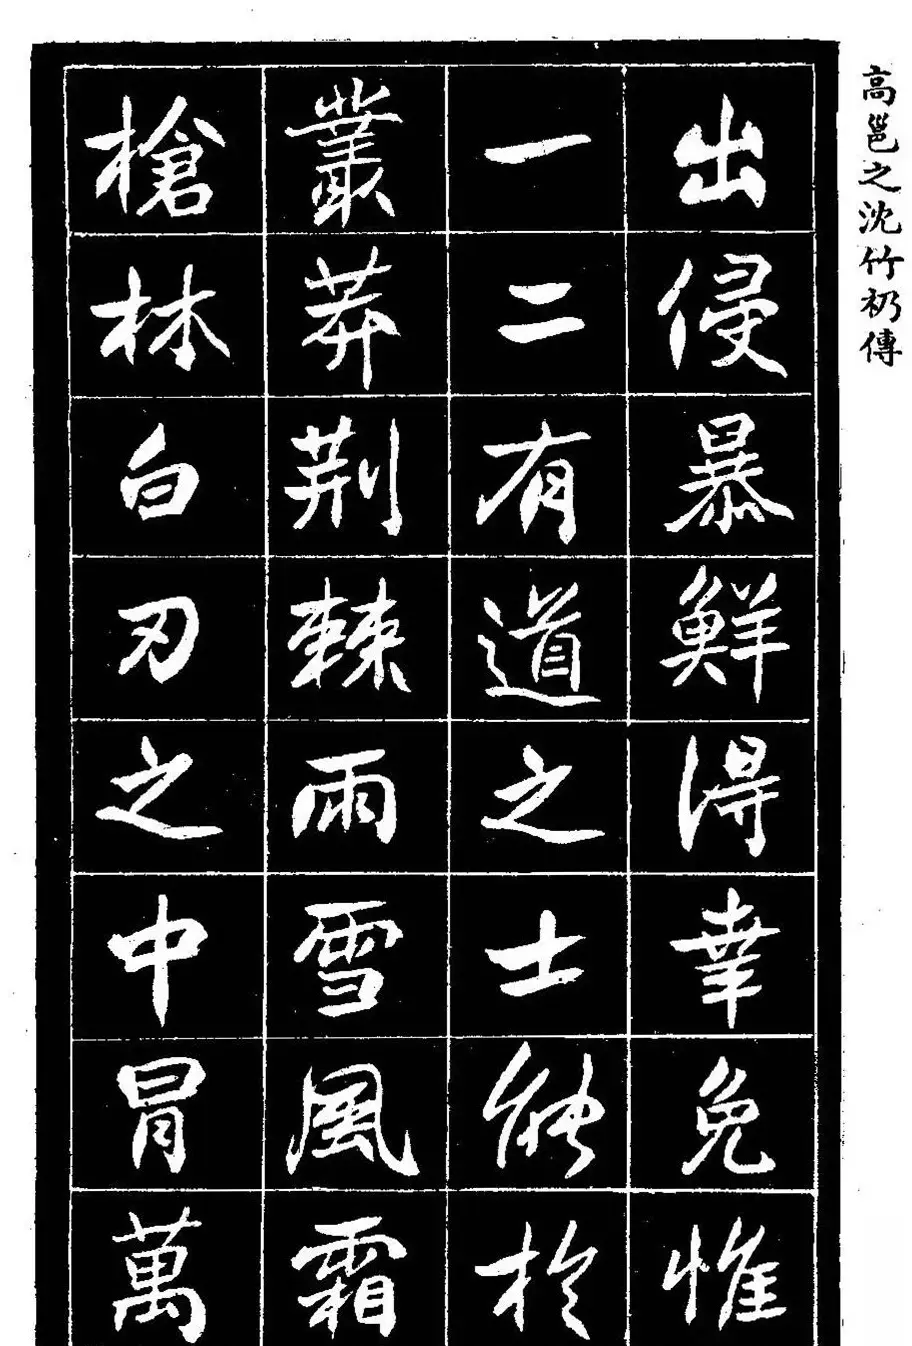 高邕之沈竹礽傳
出侵暴鮮得幸免惟
一二有道之士能於
叢莽荆棘雨雪風霜
槍林白刃之中冒萬